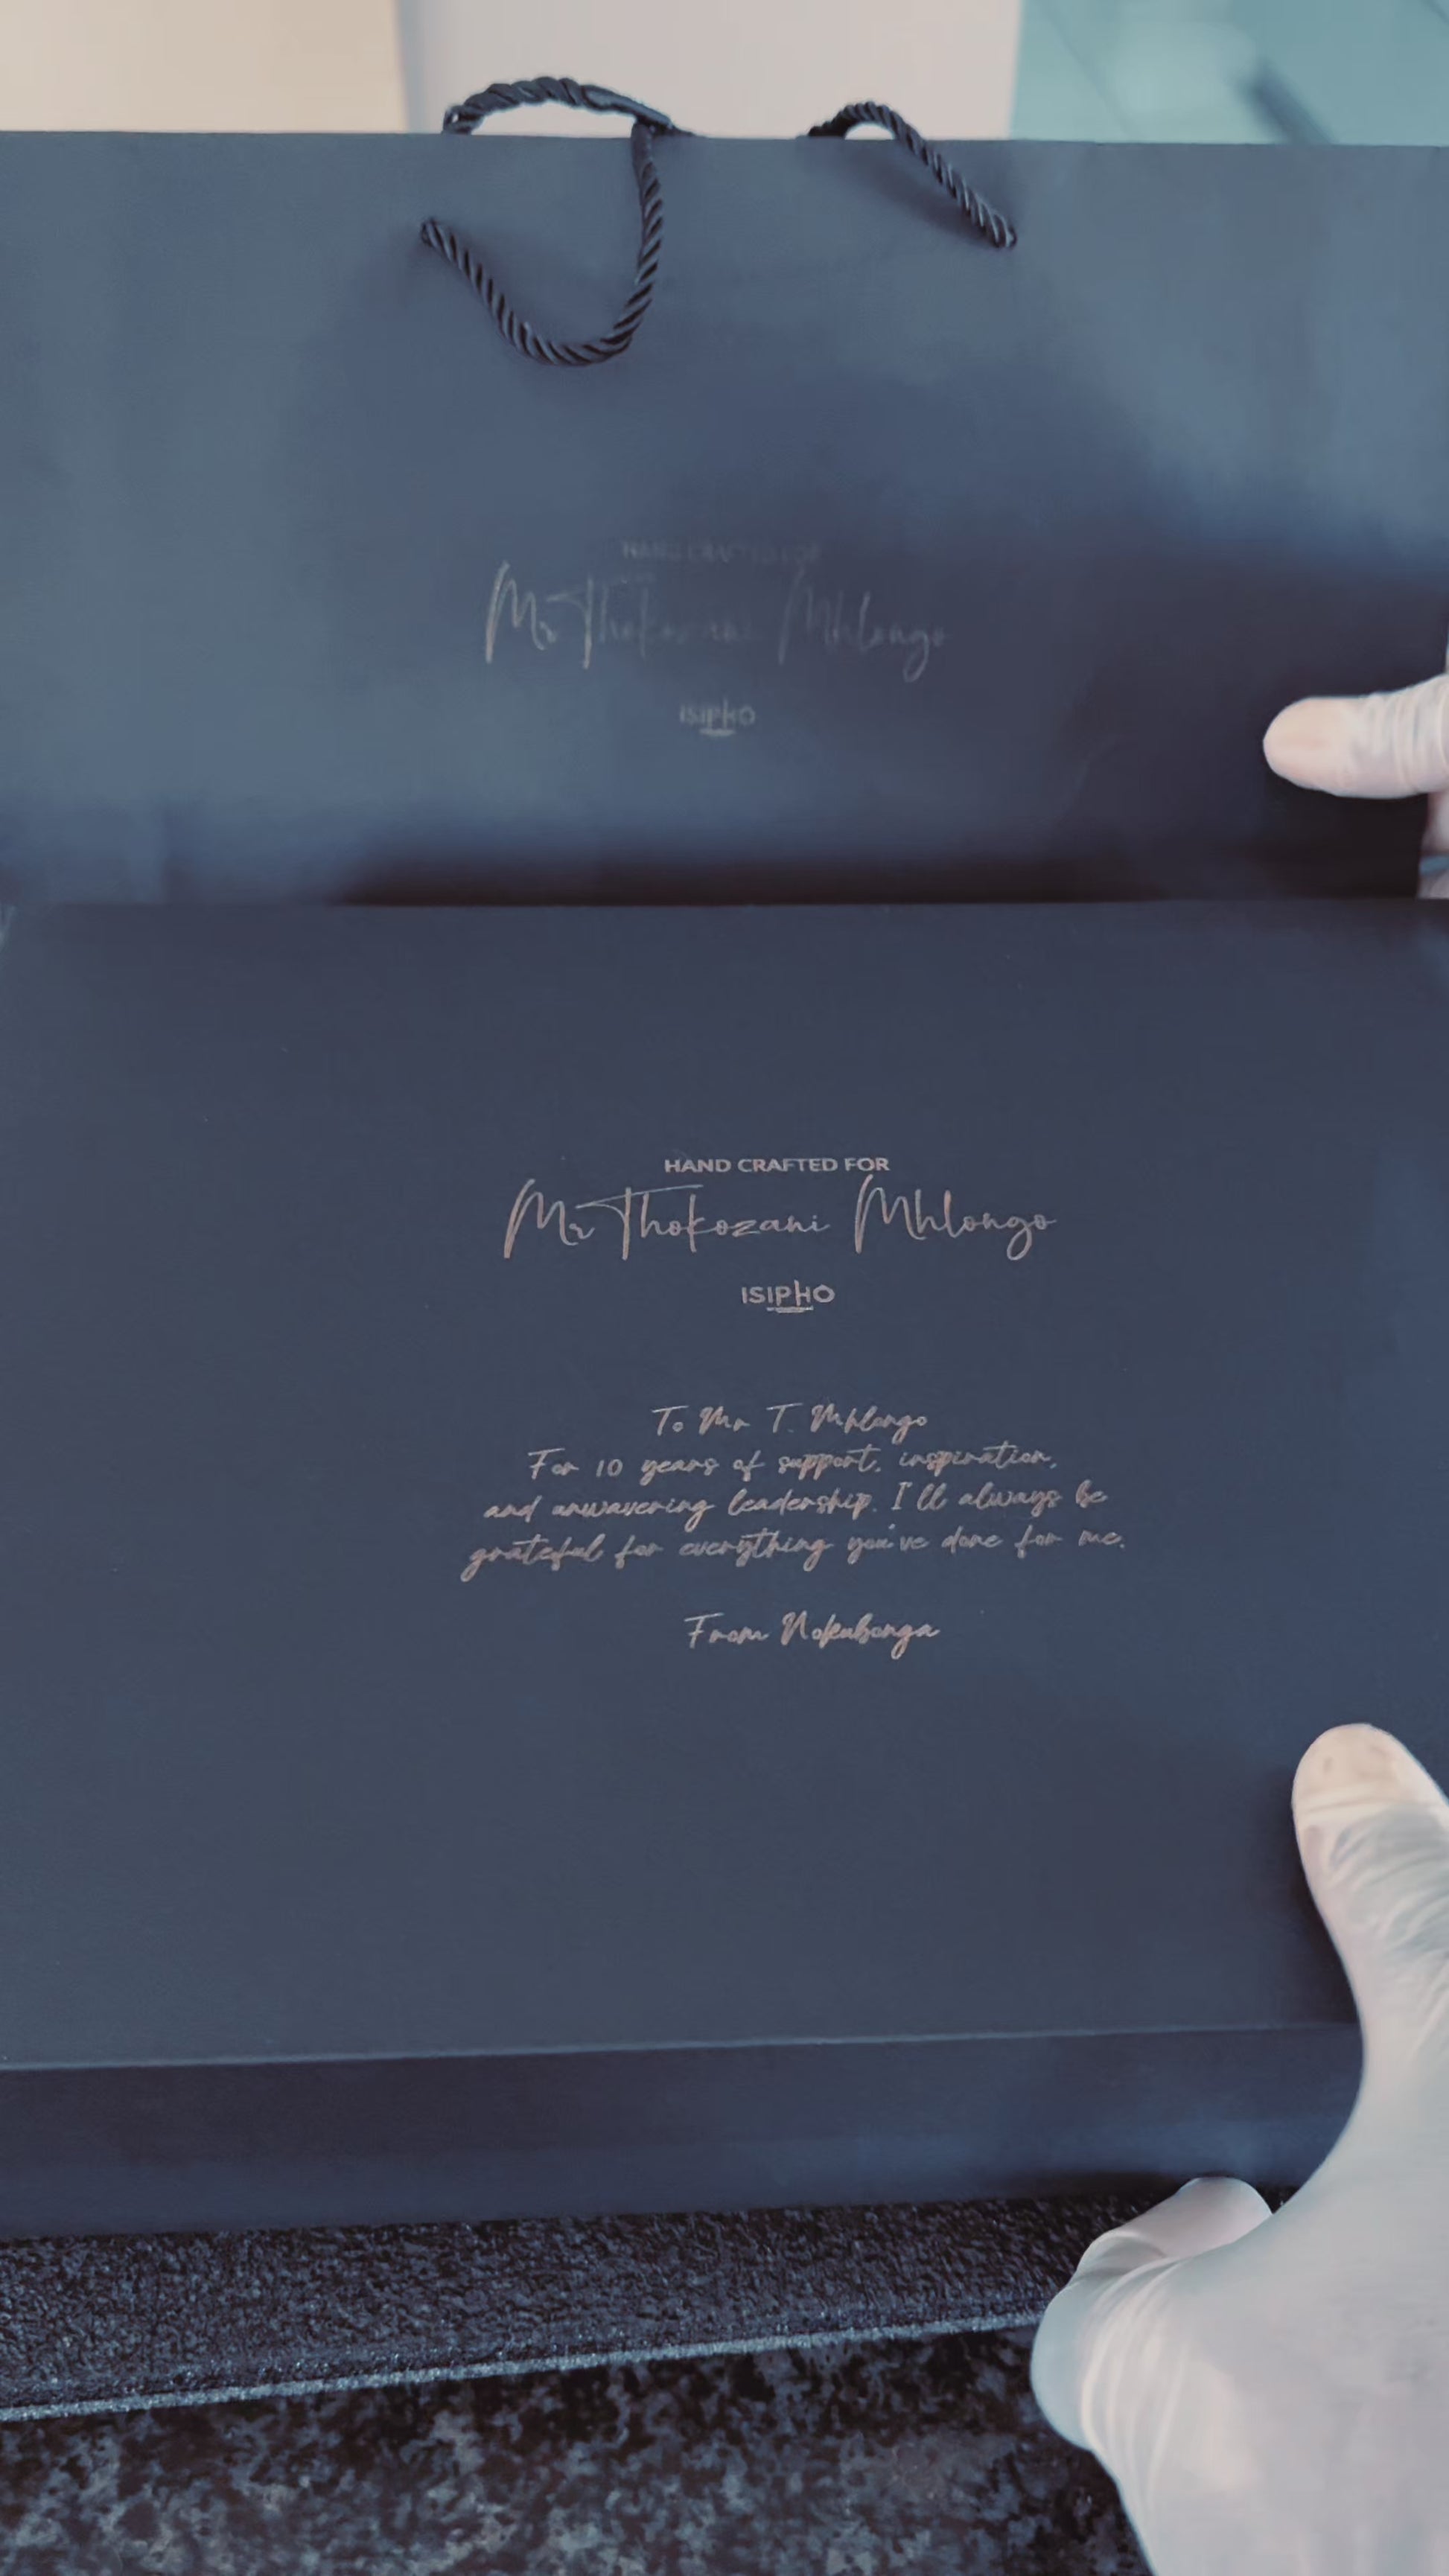 HAND CRAFTED FOR
Mr Thokozani Mhlongo
ISIPHO
HAND CRAFTED FOR
Mr Thokozani Mhlongo
ISIPHO
To Mr T. Mhlongo
For 10 years of support, inspiration,
and unwavering leadership. I'll always be
grateful for everything you've done for me.
From Nokubonga